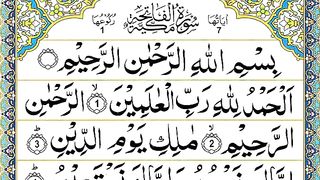 اٰيَاتُهَا 7 سُوْرَةُ الْفَاتِحَةِ مَكِّيَّةٌ رُكُوْعُهَا 1
بِسْمِ اللّٰهِ الرَّحْمٰنِ الرَّحِيْمِ
اَلْحَمْدُ لِلّٰهِ رَبِّ الْعٰلَمِيْنَ ۙ 1 الرَّحْمٰنِ
الرَّحِيْمِ ۙ 2 مٰلِكِ يَوْمِ الدِّيْنِ ؕ 3